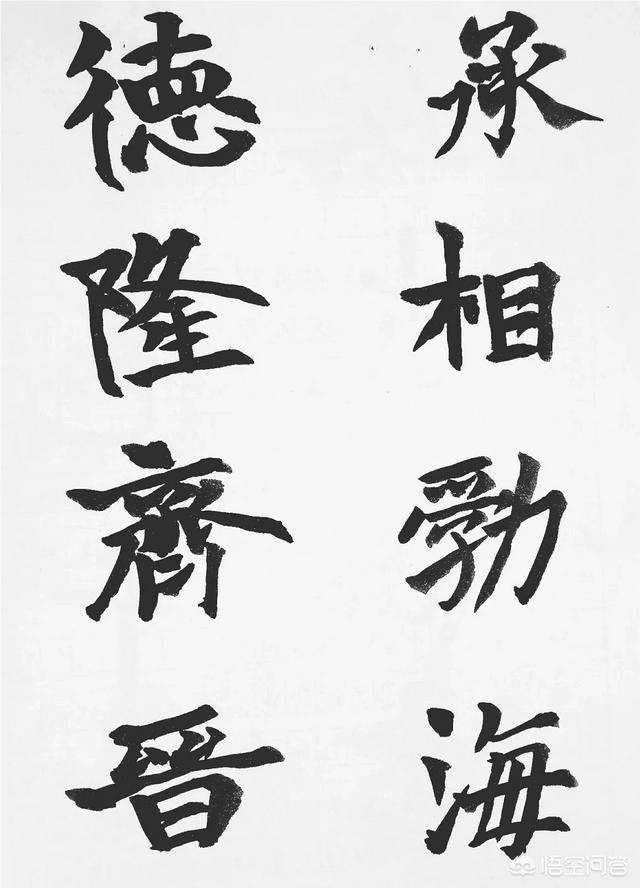 承相勃海
德隆齊晉
悟空问答